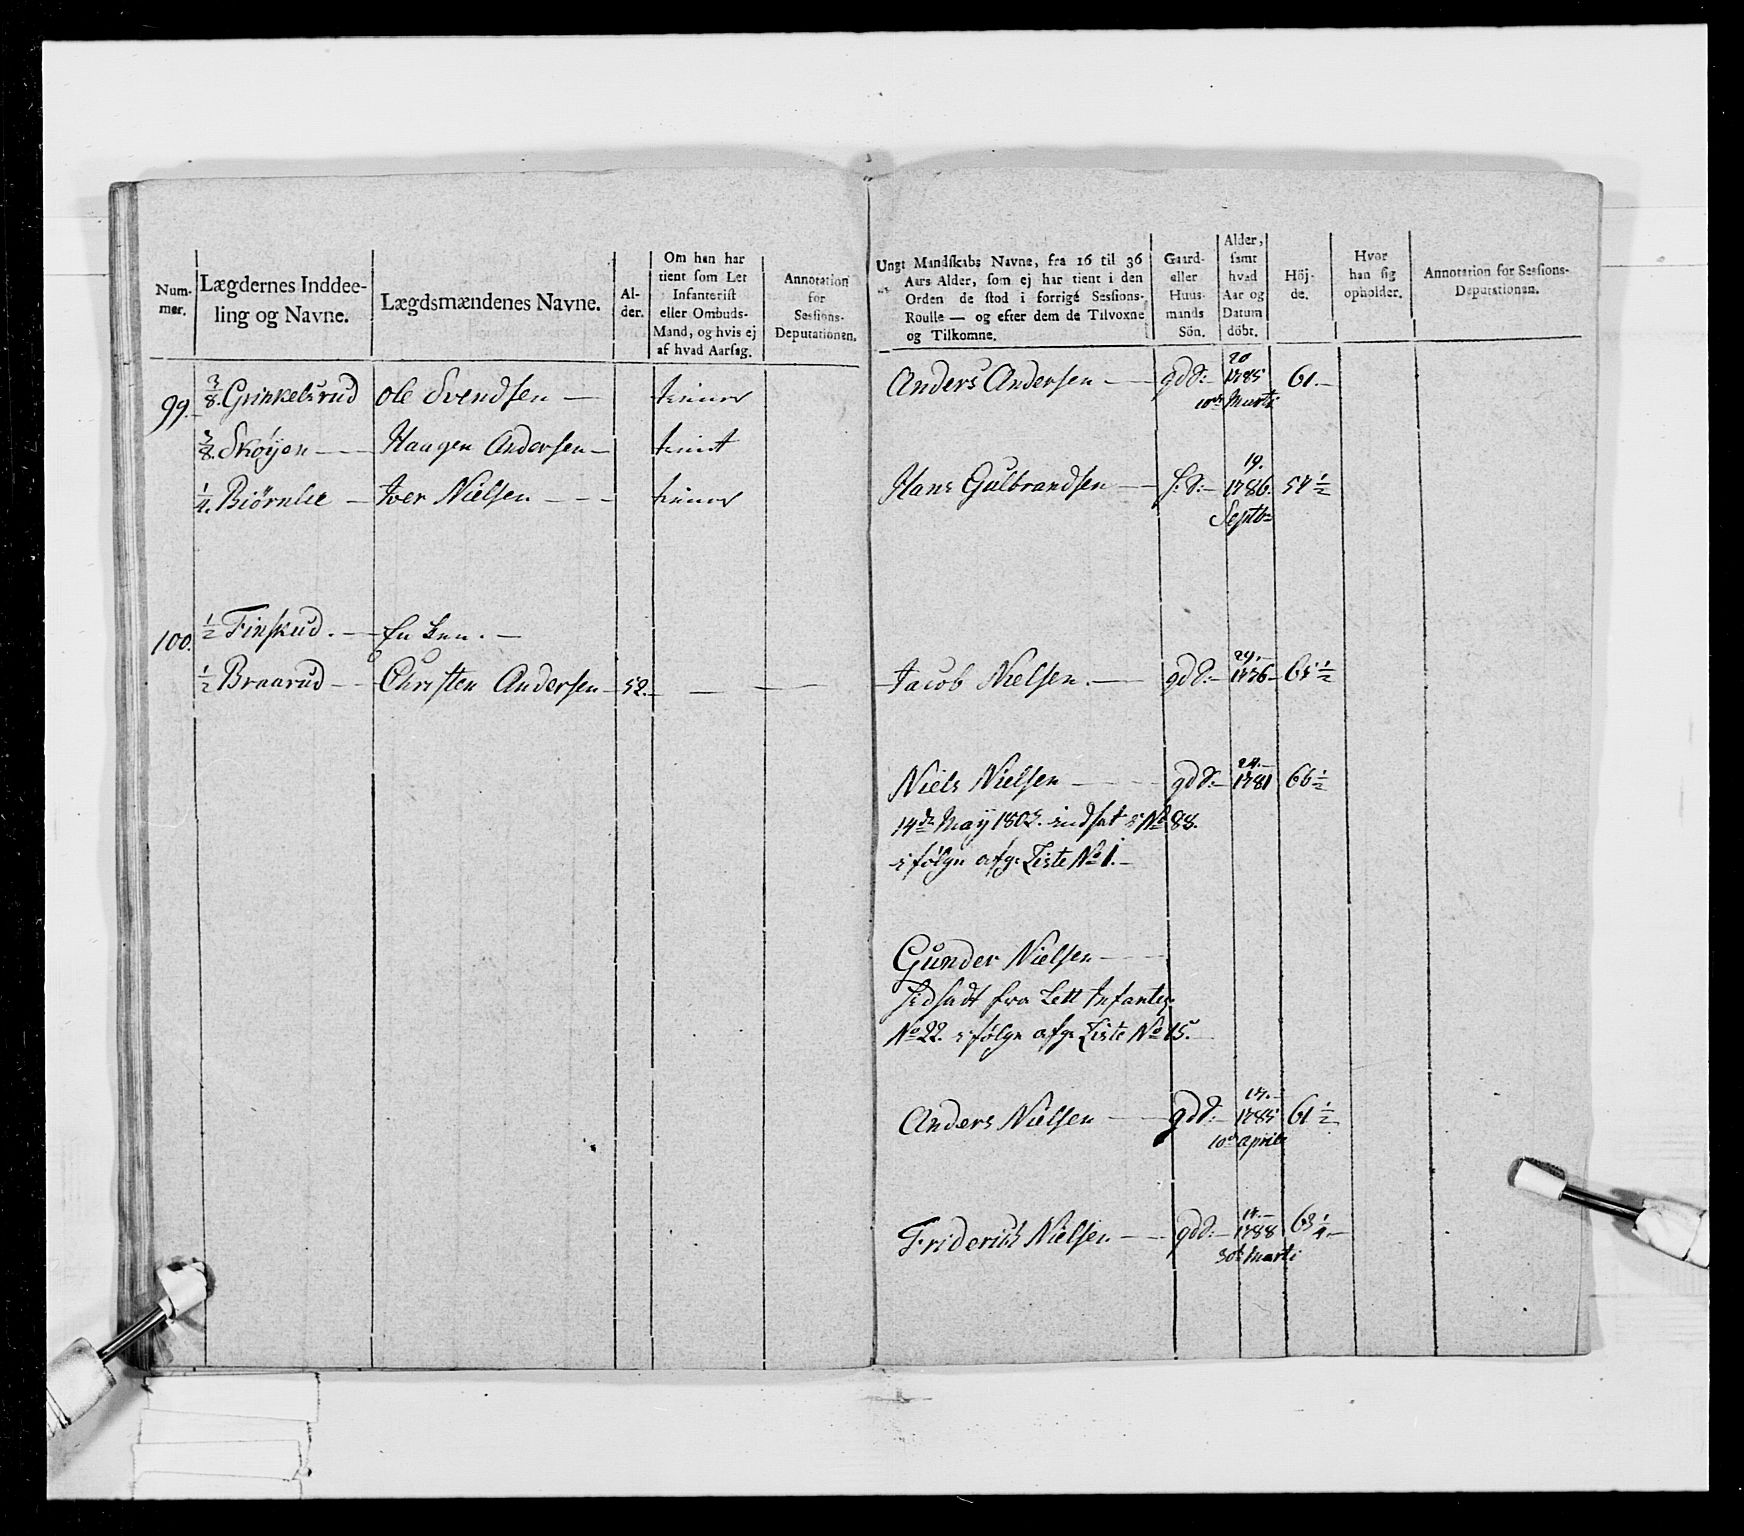 Num-
mer.
Lægdernes Inddee-
ling og Navne.
Lægdsmændenes Navne.
Al-
der.
Om han har
tient som Let
Infanterist
eller Ombuds-
Mand, og hvis ej
af hvad Aarsag.
Annotation
for
Sessions-
Deputationen.
99. 3/8. Grinkelsrud Ole Svendsen — tiener
3/8. Skøyen — Haagen Andersen — tient
1/4. Biörnlie — Iver Nielsen - - - tiener
100. 1/2 Finskud. —
1/2 Braarud - - Christen Andersen - 52. — —
Ungt Mandskabs Navne, fra 16 til 36
Aars Alder, som ej har tient i den
Orden de stod i forrige Sessions-
Roulle — og efter dem de Tilvoxne
og Tilkomne.
Gaard-
eller
Huus-
mands
Sön.
Alder,
samt
hvad
Aar og
Datum
döbt.
Höj-
de.
Hvor
han sig
opholder.
Annotation for Sessions-
Deputationen.
20
Anders Andersen — gd S:— 1785 61.—
10de Marti
19.
Hans Gulbrandsen — S:— 1786. 54 1/2
Septbr
Jacob Nielsen. — gd S:— 1776 — 65 1/2
24.—
Niels Nielsen — gd S:— 1781 66 1/2
14de May 1803. indsat i No 88.
ifölge afg. Liste No 1.—
Gunder Nielsen —
Indsadt fra Lett Infanteri
No 22. ifölge afg. Liste No 15.
17.—
Anders Nielsen — gd S:— 1785 61 1/2
10de April
Friderich Nielsen — gd S:— 1788 63 1/4—
30te Marti